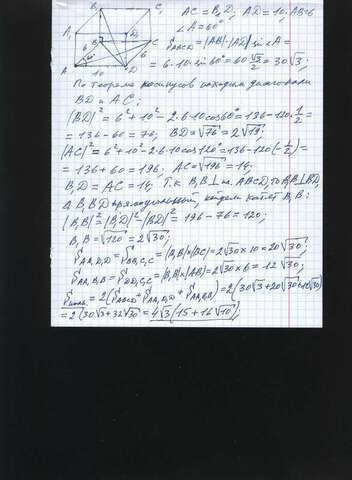 B₁ C₁ AC = B₁D, AD = 10, AB = 6
A₁ D₁ ∠A = 60°
B C S ABCD = |AB|·|AD| sin∠A =
A 60° 10 D 6 = 6·10·sin60° = 60 √3/2 = 30√3;
По теореме косинусов находим диагонали
BD и AC;
|BD|² = 6² + 10² - 2·6·10 cos60° = 136 - 120·1/2 =
= 136 - 60 = 76; BD = √76 = 2√19;
|AC|² = 6² + 10² - 2·6·10 cos120° = 136 - 120(-1/2) =
= 136 + 60 = 196; AC = √196 = 14;
B₁D = AC = 14; Т.к. B₁B ⊥ пл. ABCD, то B₁B ⊥ BD,
Δ B₁BD прямоугольный, найдем катет B₁B:
|B₁B|² = |B₁D|² - |BD|² = 196 - 76 = 120;
B₁B = √120 = 2√30;
S AA₁D₁D = S BB₁C₁C = |B₁B|×|BC| = 2√30 × 10 = 20√30;
S AA₁B₁B = S DD₁C₁C = |B₁B|×|AB| = 2√30 × 6 = 12√30;
S = 2(S ABCD + S AA₁D₁D + S AA₁B₁B) = 2(30√3 + 20√30 + 12√30)
= 2(30√3 + 32√30) = 4√3(15 + 16√10);